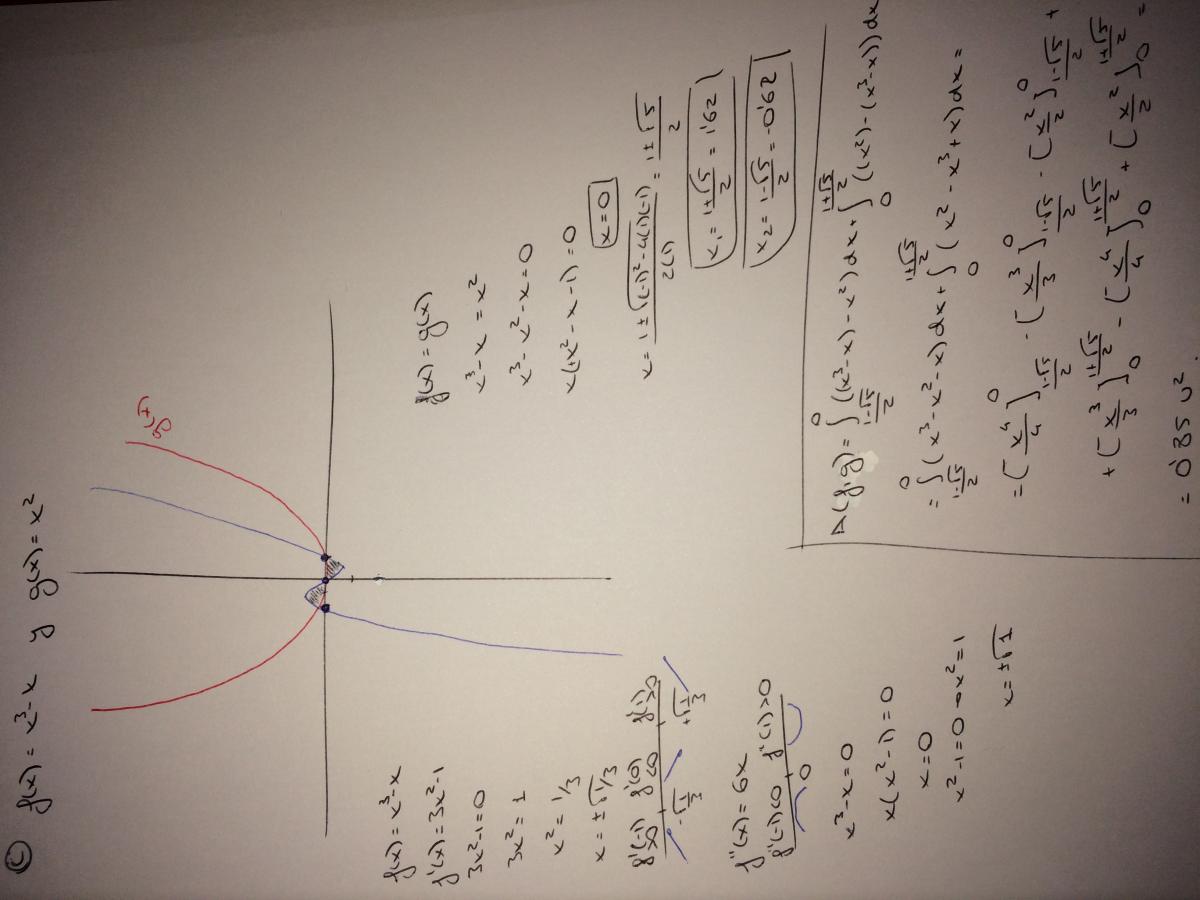 C) f(x) = x³-x y g(x) = x²
g(x)
f(x) = x³-x
f'(x) = 3x²-1
3x²-1=0
3x² = 1
x² = 1/3
x = ±√1/3
f'(-1) >0 f'(0) <0 f'(1) >0
-√1/3 +√1/3
f''(x) = 6x
f''(-1)<0 f''(1)>0
0
x³-x=0
x(x²-1)=0
x=0
x²-1=0 → x²=1
x=±√1
f(x) = g(x)
x³-x = x²
x³-x²-x=0
x(+x²-x-1)=0
x=0
x = 1±√(-1)²-4(1)(-1) / 2(1) = 1±√5 / 2
x₁ = 1+√5 / 2 = 1'62
x₂ = 1-√5 / 2 = -0'62
A(f,g) = ∫_{1-√5/2}^{0} ((x³-x)-x²)dx + ∫_{0}^{1+√5/2} ((x²)-(x³-x))dx
= ∫_{1-√5/2}^{0} (x³-x²-x)dx + ∫_{0}^{1+√5/2} (x²-x³+x)dx =
= [x⁴/4]_{1-√5/2}^{0} - [x³/3]_{1-√5/2}^{0} - [x²/2]_{1-√5/2}^{0} +
+ [x³/3]_{0}^{1+√5/2} - [x⁴/4]_{0}^{1+√5/2} + [x²/2]_{0}^{1+√5/2} =
= 0'85 u².